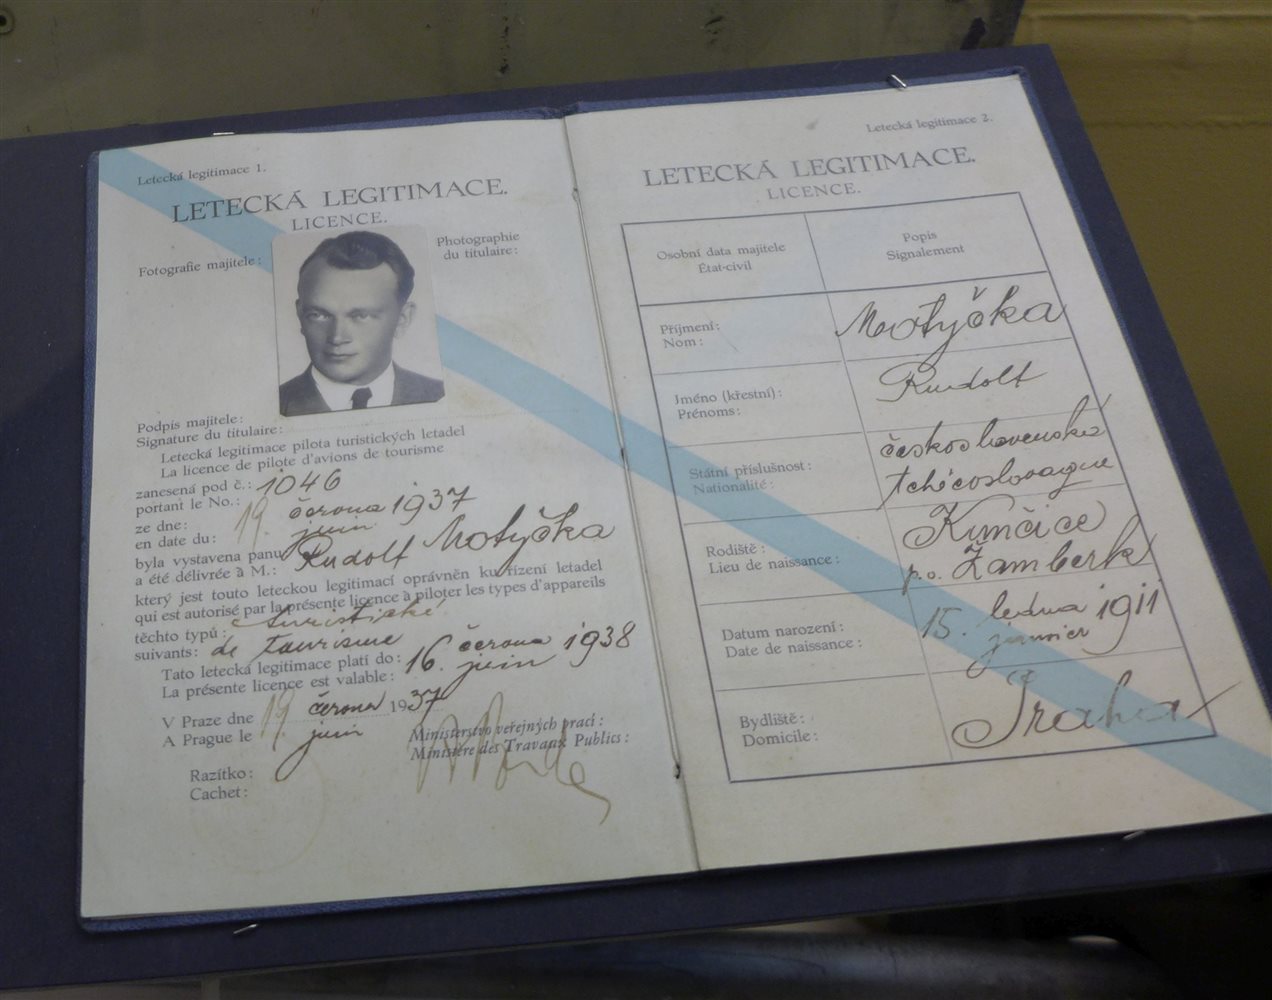 Letecká legitimace 1.
LETECKÁ LEGITIMACE.
LICENCE.
Fotografie majitele:
Photographie
du titulaire:
Podpis majitele:
Signature du titulaire:
Letecká legitimace pilota turistických letadel
La licence de pilote d'avions de tourisme
zanesená pod č.: 1046
portant le No.:
ze dne: 19. června 1937
en date du: juin
byla vystavena panu Rudolf Motyčka
a été délivrée à M.:
který jest touto leteckou legitimací oprávněn ku řízení letadel
qui est autorisé par la présente licence à piloter les types d'appareils
těchto typů: turistické
suivants: de tourisme
Tato letecká legitimace platí do: 16. června 1938
La présente licence est valable: juin
V Praze dne 19. června 1937
A Prague le juin
Ministerstvo veřejných prací:
Ministère des Travaux Publics:
Razítko:
Cachet:
Letecká legitimace 2.
LETECKÁ LEGITIMACE.
LICENCE.
Osobní data majitele
État-civil
Popis
Signalement
Příjmení: Motyčka
Nom:
Jméno (křestní): Rudolf
Prénoms:
Státní příslušnost: československá
Nationalité: tchécoslovaque
Rodiště: Kunčice
Lieu de naissance: p.o. Žamberk
Datum narození: 15. ledna 1911
Date de naissance: janvier
Bydliště: Praha
Domicile: